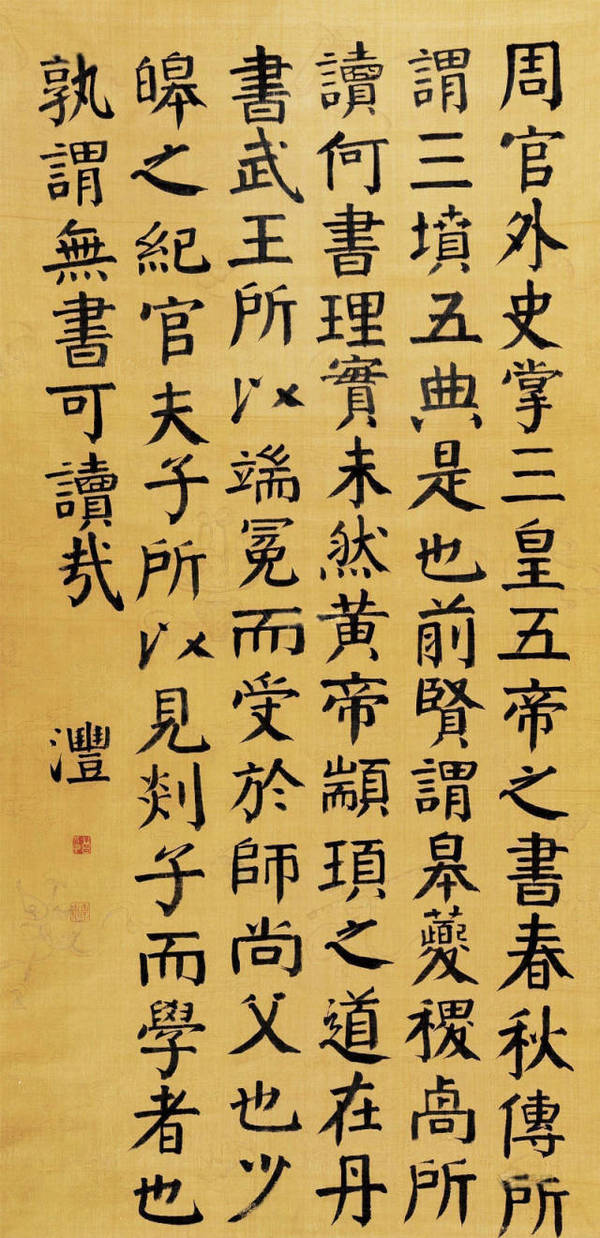 周官外史掌三皇五帝之書春秋傳所
謂三墳五典是也前賢謂皋夔稷卨所
讀何書理實未然黄帝顓頊之道在丹
書武王所以端冕而受於師尚父也少
皞之紀官夫子所以見郯子而學者也
孰謂無書可讀哉
灃